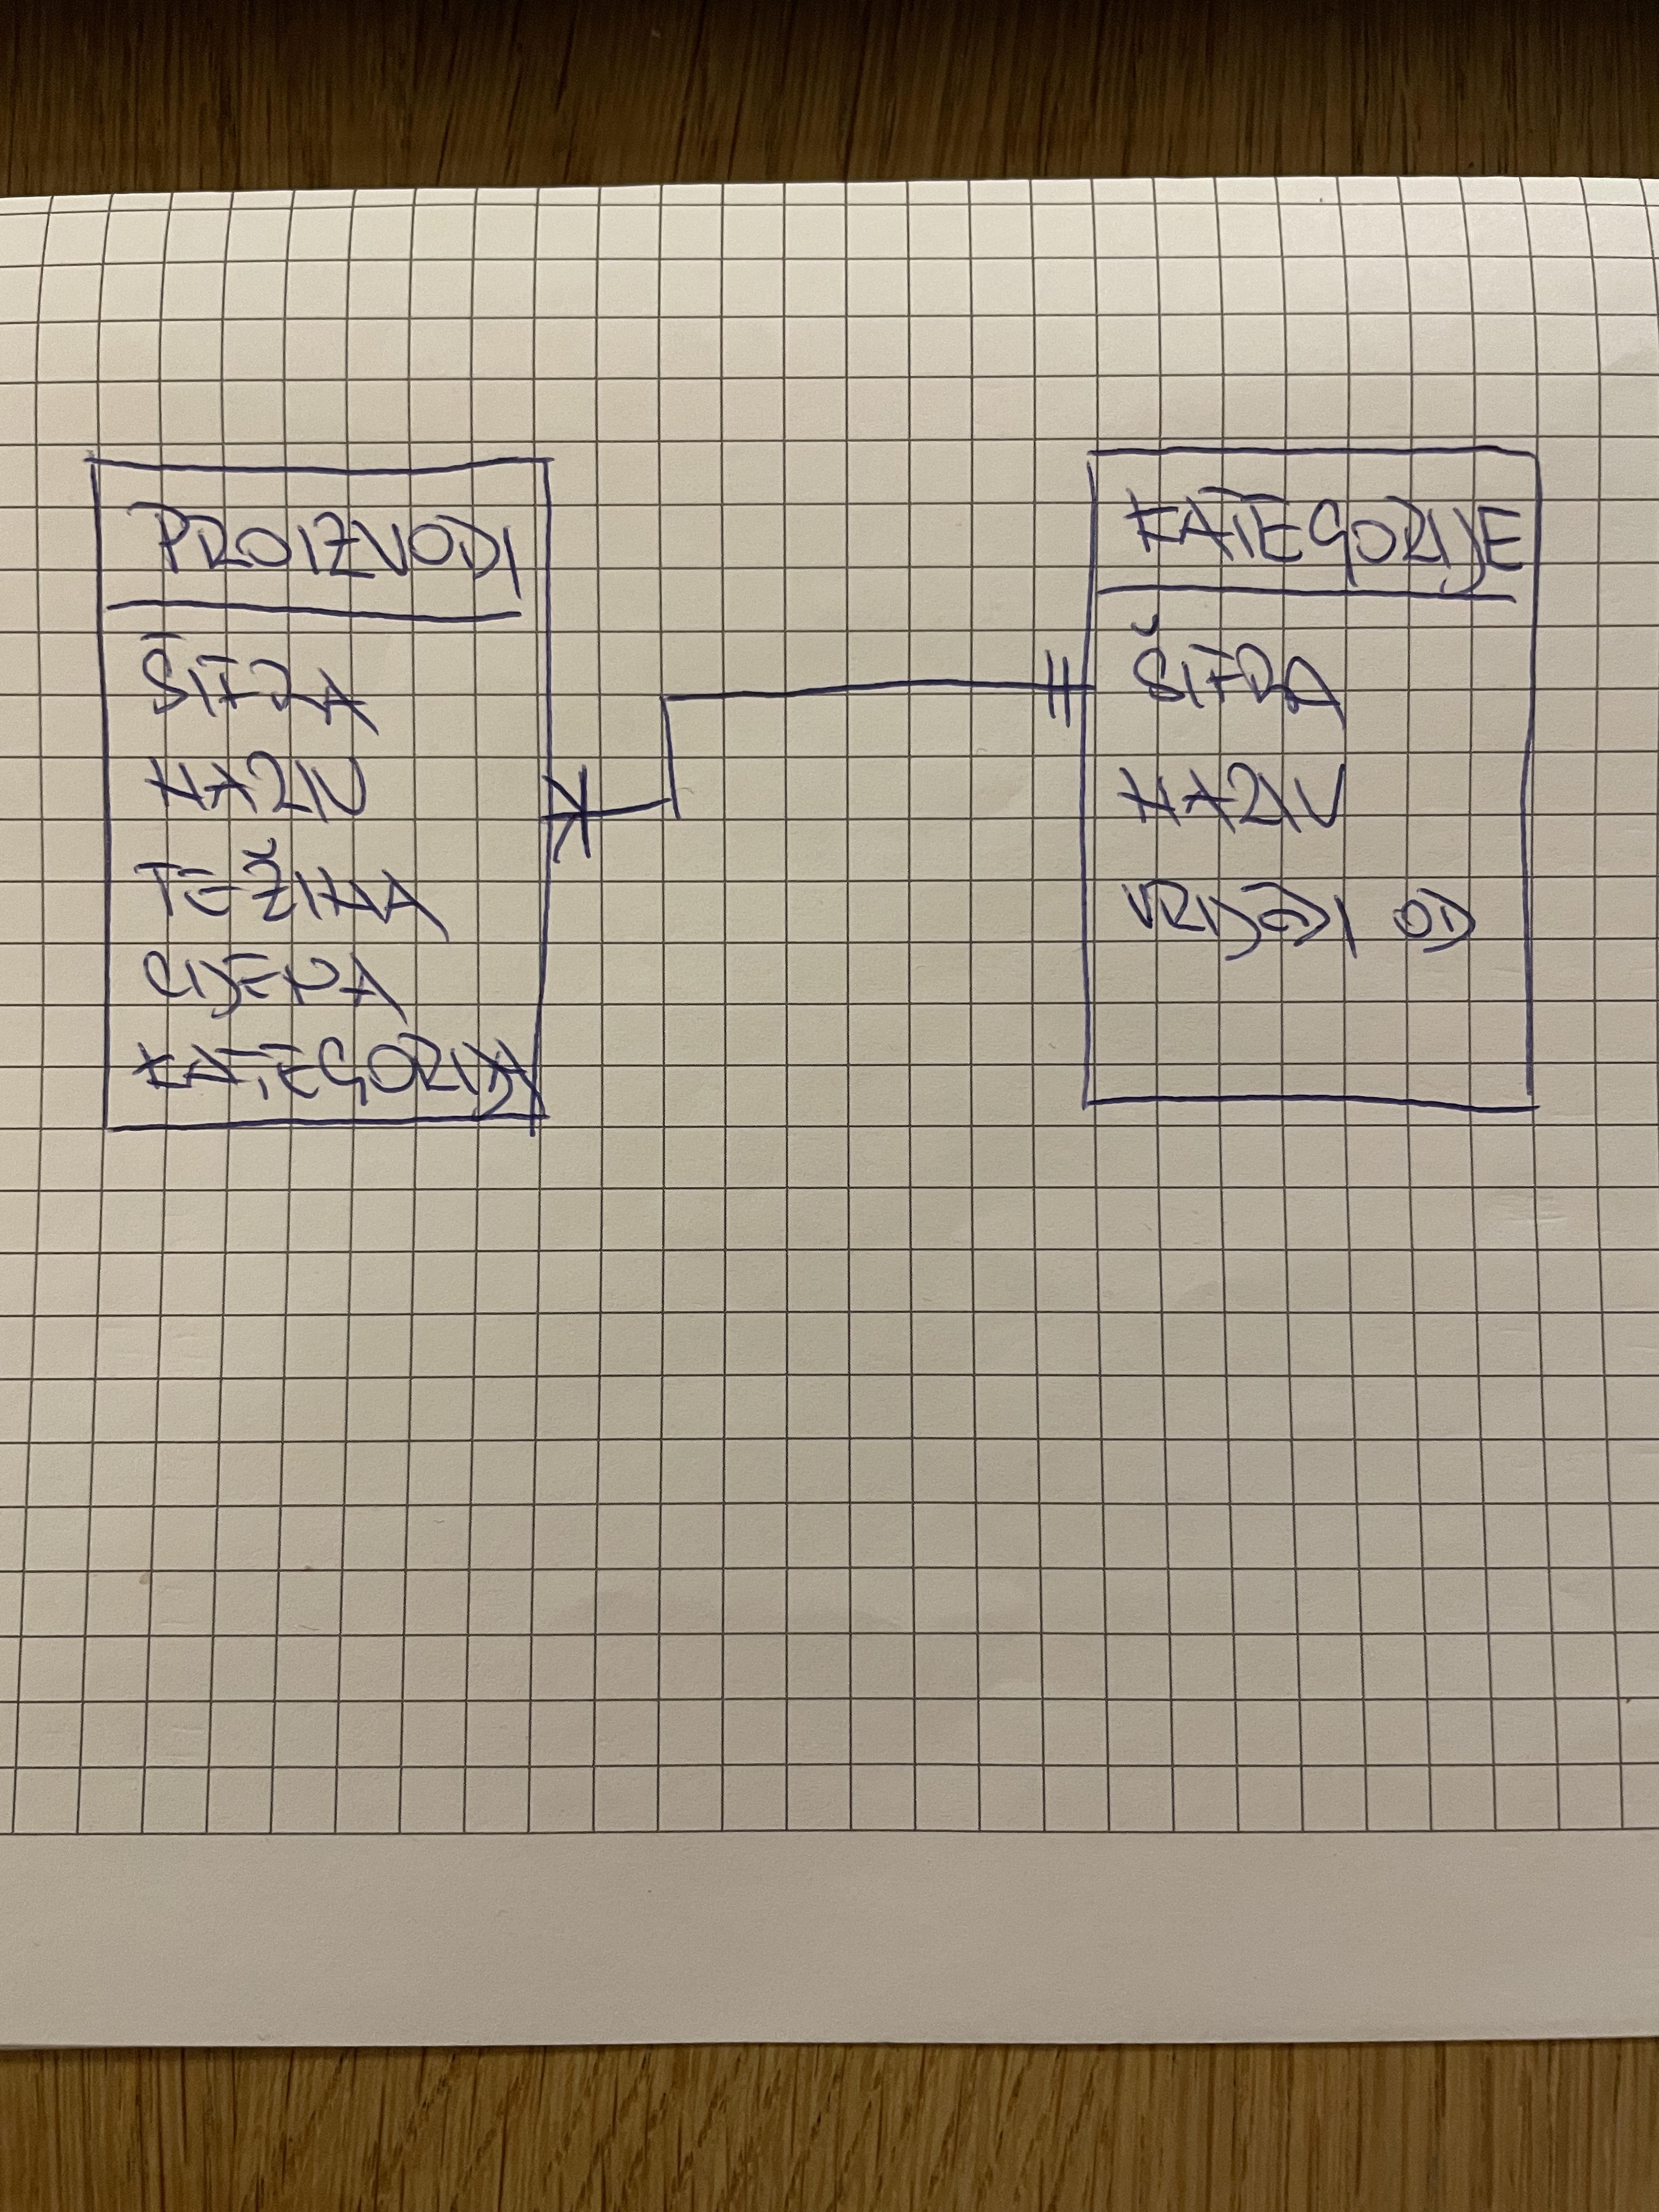 PROIZVODI
ŠIFRA
NAZIV
TEŽINA
CIJENA
KATEGORIJA
KATEGORIJE
ŠIFRA
NAZIV
VRIJEDI OD